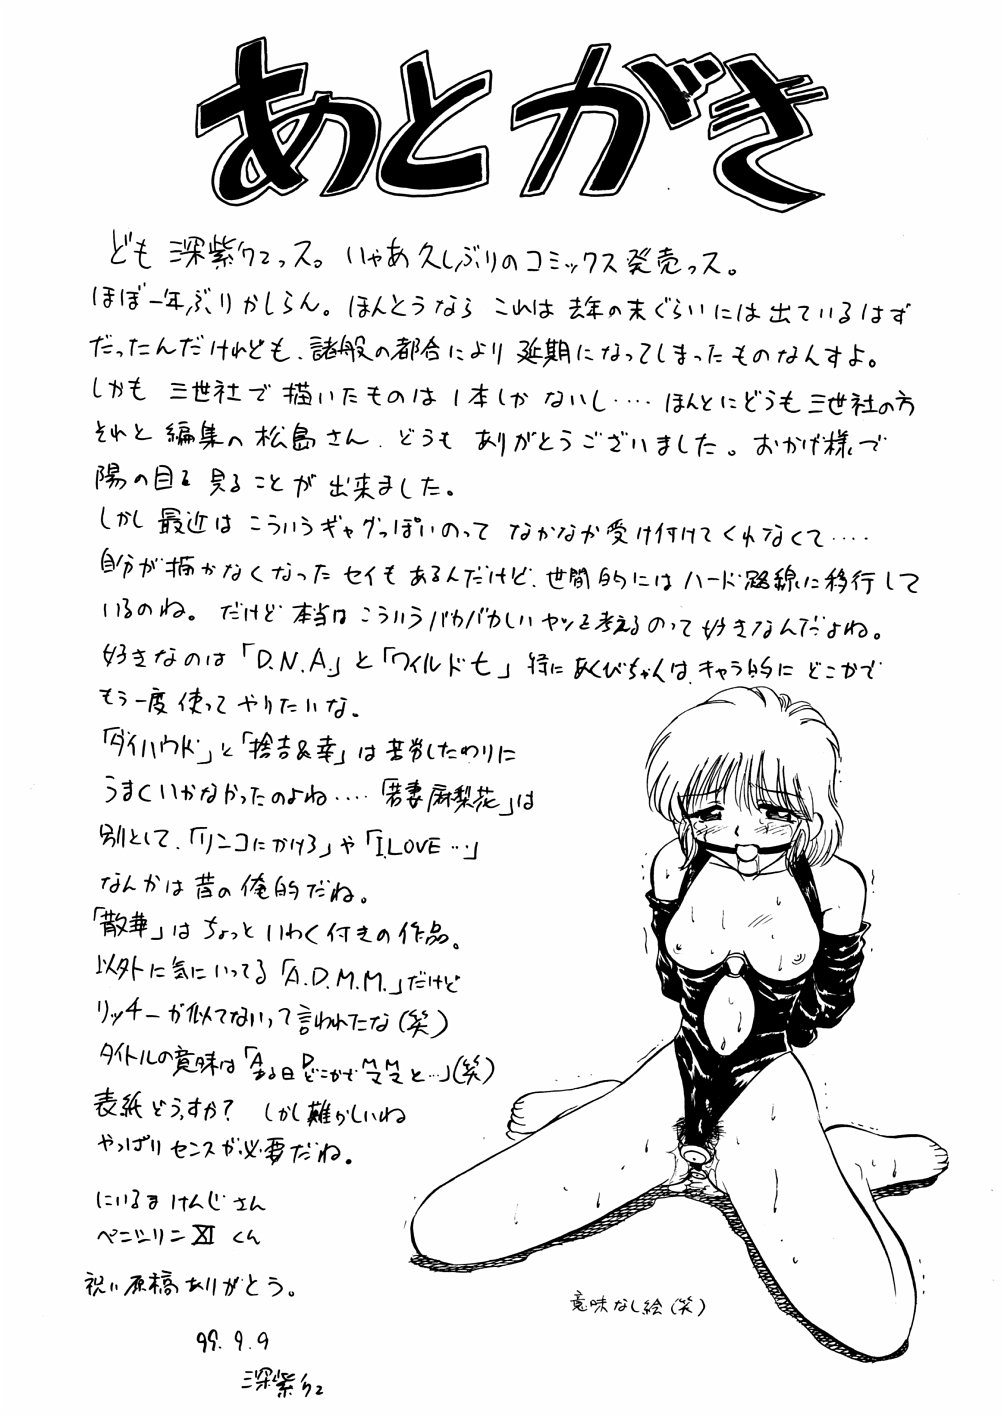 あとがき
ども 深紫クマっス。いやあ久しぶりのコミックス発売っス。
ほぼ一年ぶりかしらん。ほんとうなら これは 去年の末ぐらいには出ているはず
だったんだけれども、諸般の都合により 延期になってしまったものなんすよ。
しかも 三世社で 描いたものは 1本しか ないし‥‥ ほんとにどうも三世社の方
それと 編集の 松島さん、どうも ありがとうございました。おかげ様で
陽の目を 見ることが 出来ました。
しかし 最近は こういうギャグっぽいのって なかなか受け付けてくれなくて‥‥
自分が描かなくなったセイもあるんだけど、世間的にはハード路線に移行して
いるのね。だけど 本当は こういうバカバカしいヤツを考えるのって好きなんだよね。
好きなのは「D.N.A.」と「ワイルド七」特にあくびちゃんは、キャラ的に どこかで
もう一度 使って やりたいな。
「ダイハウド」と「捨吉&幸」は 苦労したわりに
うまくいかなかったのよね‥‥「若妻麻梨花」は
別として、「リンゴにかけろ」や「I.LOVE…」
なんかは 昔の俺的だね。
「散華」は ちょっと いわく付きの 作品。
以外に気にいってる「A.D.M.M.」だけど
リッチーが似てないって言われたな(笑)
タイトルの意味は「ある日どこかでママと…」(笑)
A D M M
表紙どうすか? しかし難かしいね
やっぱりセンスが必要だね。
にいるま けんじ さん
ペニシリン XI くん
祝い原稿ありがとう。
99.9.9
深紫
意味なし絵(笑)